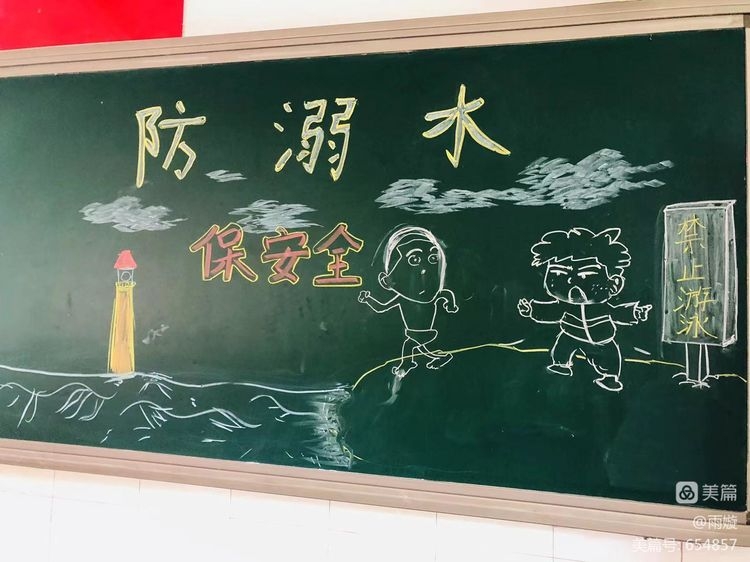 防溺水
保安全
禁止游泳
美篇
@雨嫙
美篇号: 654857